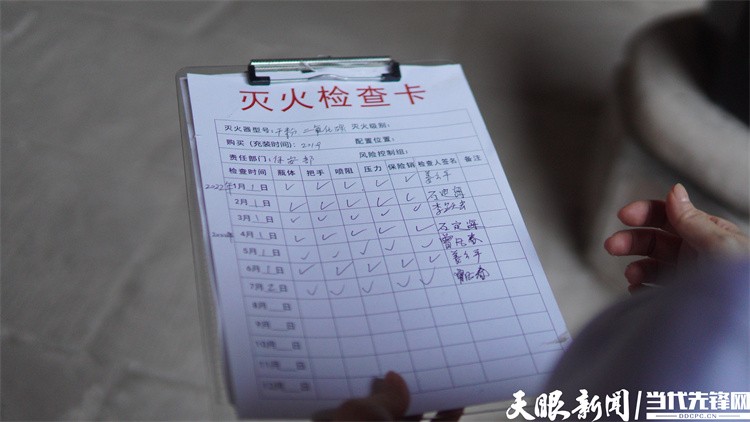 灭火检查卡
灭火器型号:干粉 二氧化碳 灭火级别:
购买(充装时间):2019 配置位置:
责任部门:保安部 风险控制组:
检查时间 瓶体 把手 喷阻 压力 保险销 检查人签名 备注
2022年1月1日 ✓ ✓ ✓ ✓ ✓
2月1日 ✓ ✓ ✓ ✓ ✓
3月1日 ✓ ✓ ✓ ✓ ✓
4月1日 ✓ ✓ ✓ ✓ ✓
5月1日 ✓ ✓ ✓ ✓ ✓
6月1日 ✓ ✓ ✓ ✓ ✓
7月2日 ✓ ✓ ✓ ✓ ✓
8月 日
9月 日
10月 日
11月 日
12月 日
天眼新闻 当代先锋网
DDCPC.CN